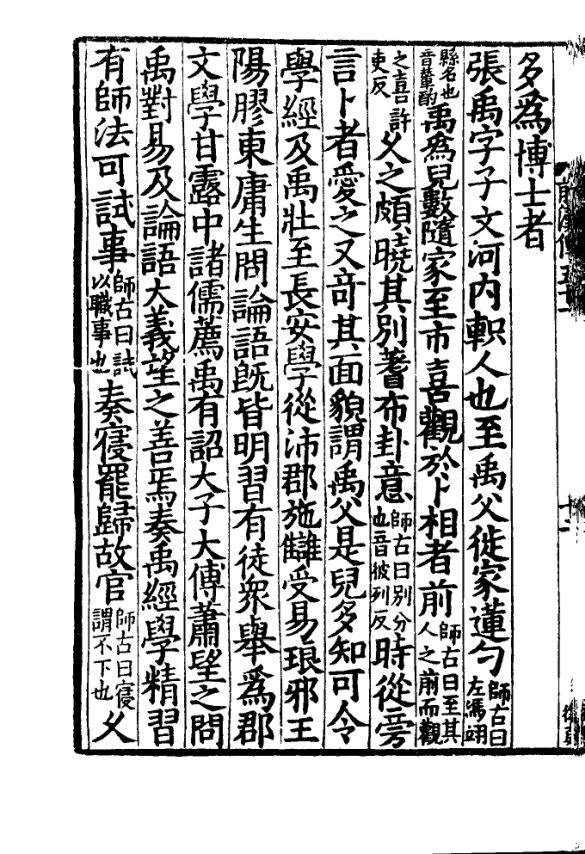 多爲博士者
張禹字子文河内軹人也至禹父徙家蓮勺師古曰左馮翊
縣名也音輦酌禹爲兒數隨家至市喜觀於卜相者前師古曰至其人之前而觀
之喜許吏反乆之頗曉其別蓍布卦意師古曰別分也音彼列反時從旁
言卜者愛之又竒其面貌謂禹父是兒多知可令
學經及禹壯至長安學從沛郡施讎受易琅邪王
陽膠東庸生問論語旣皆明習有徒衆舉爲郡
文學甘露中諸儒薦禹有詔大子大傅蕭望之問
禹對易及論語大義望之善焉奏禹經學精習
有師法可試事師古曰試以職事也奏寑罷歸故官師古曰寑謂不下也乆